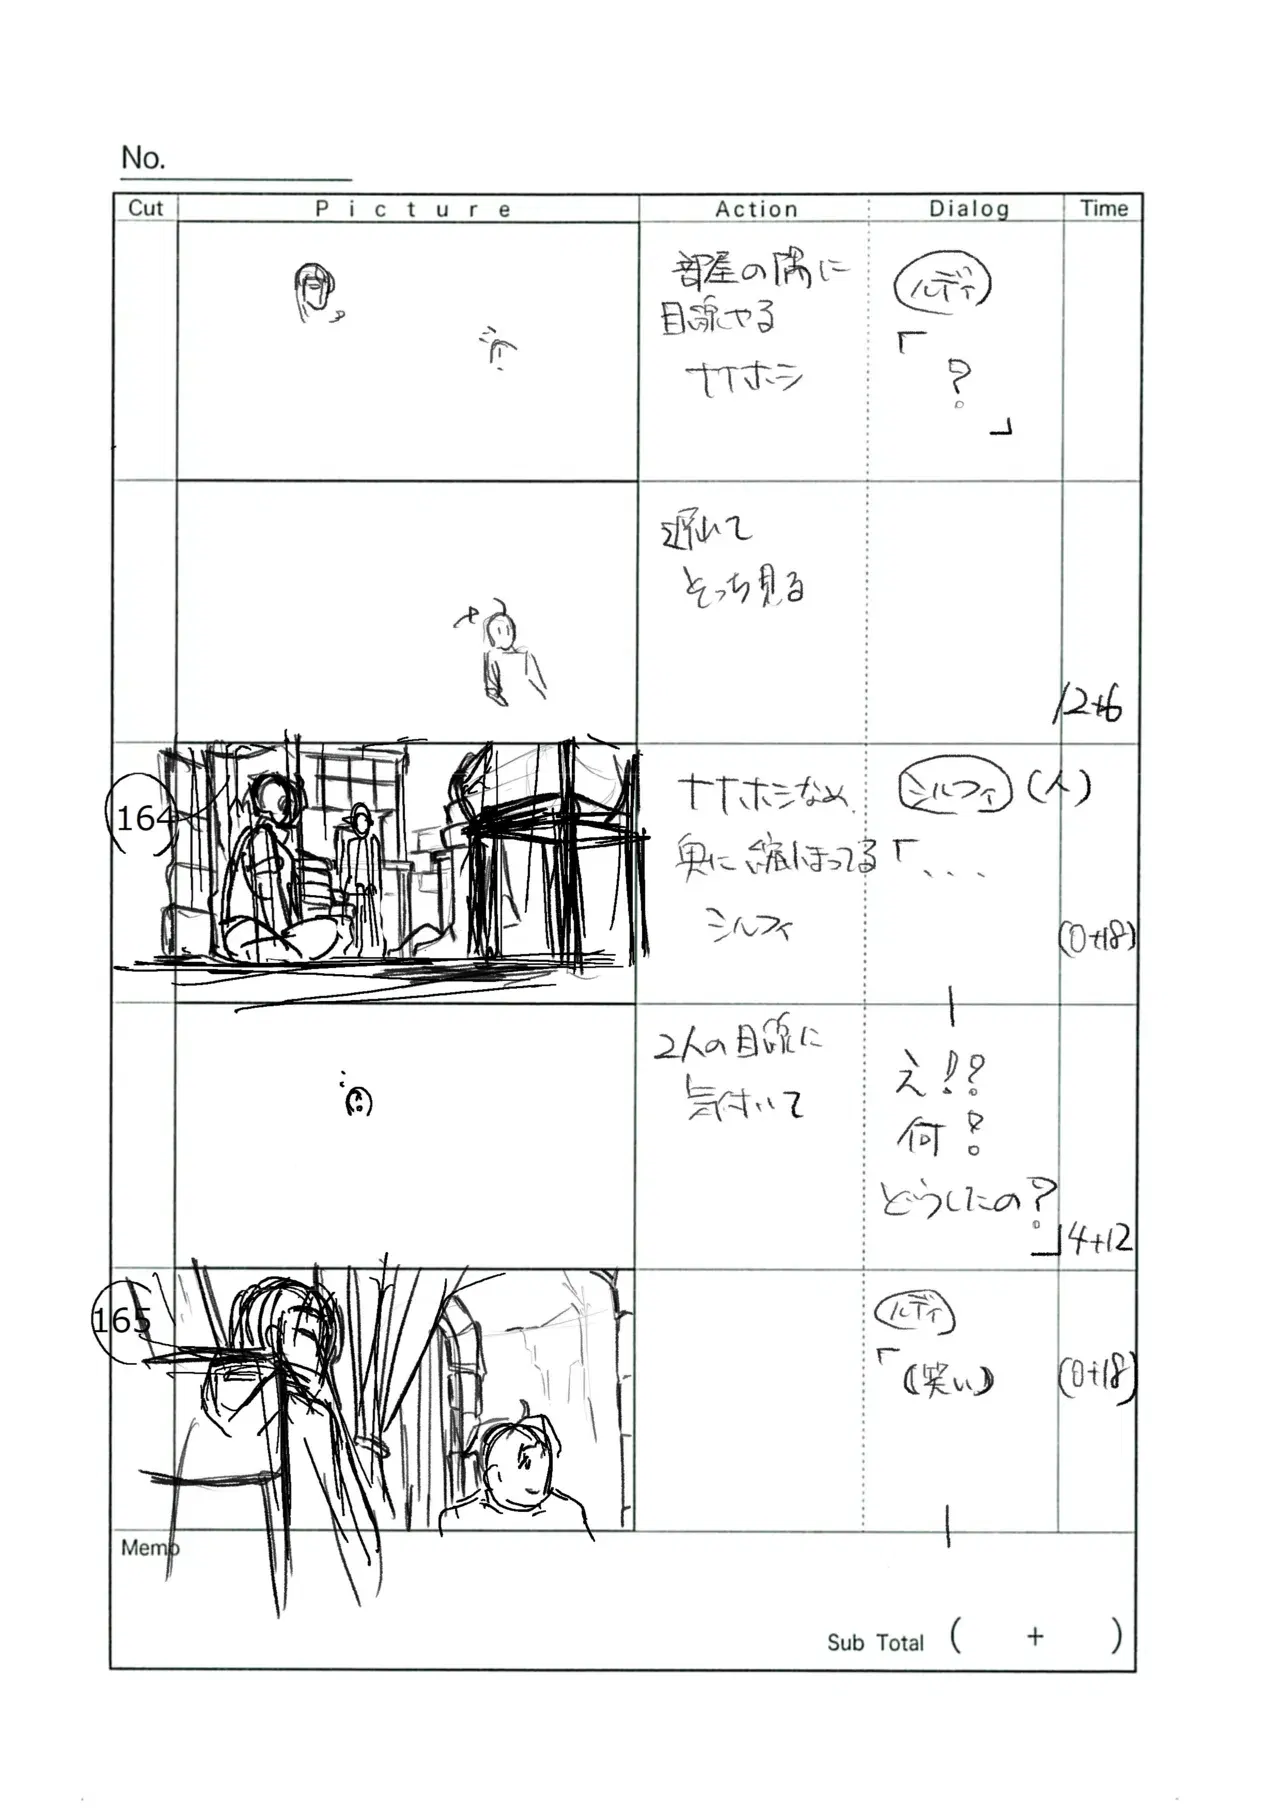 No.
Cut Picture Action Dialog Time
部屋の隅に
目線やる
ナナホシ
ルディ
「
?
」
遅れて
そっち見る
12+6
164
ナナホシなめ
奥に縮こまってる
シルフィ
シルフィ (人)
「...
(0+18)
2人の目線に
気付いて
え!?
何?
どうしたの?
」
4+12
165
ルディ
「
(笑い)
(0+18)
Memo
Sub Total ( + )